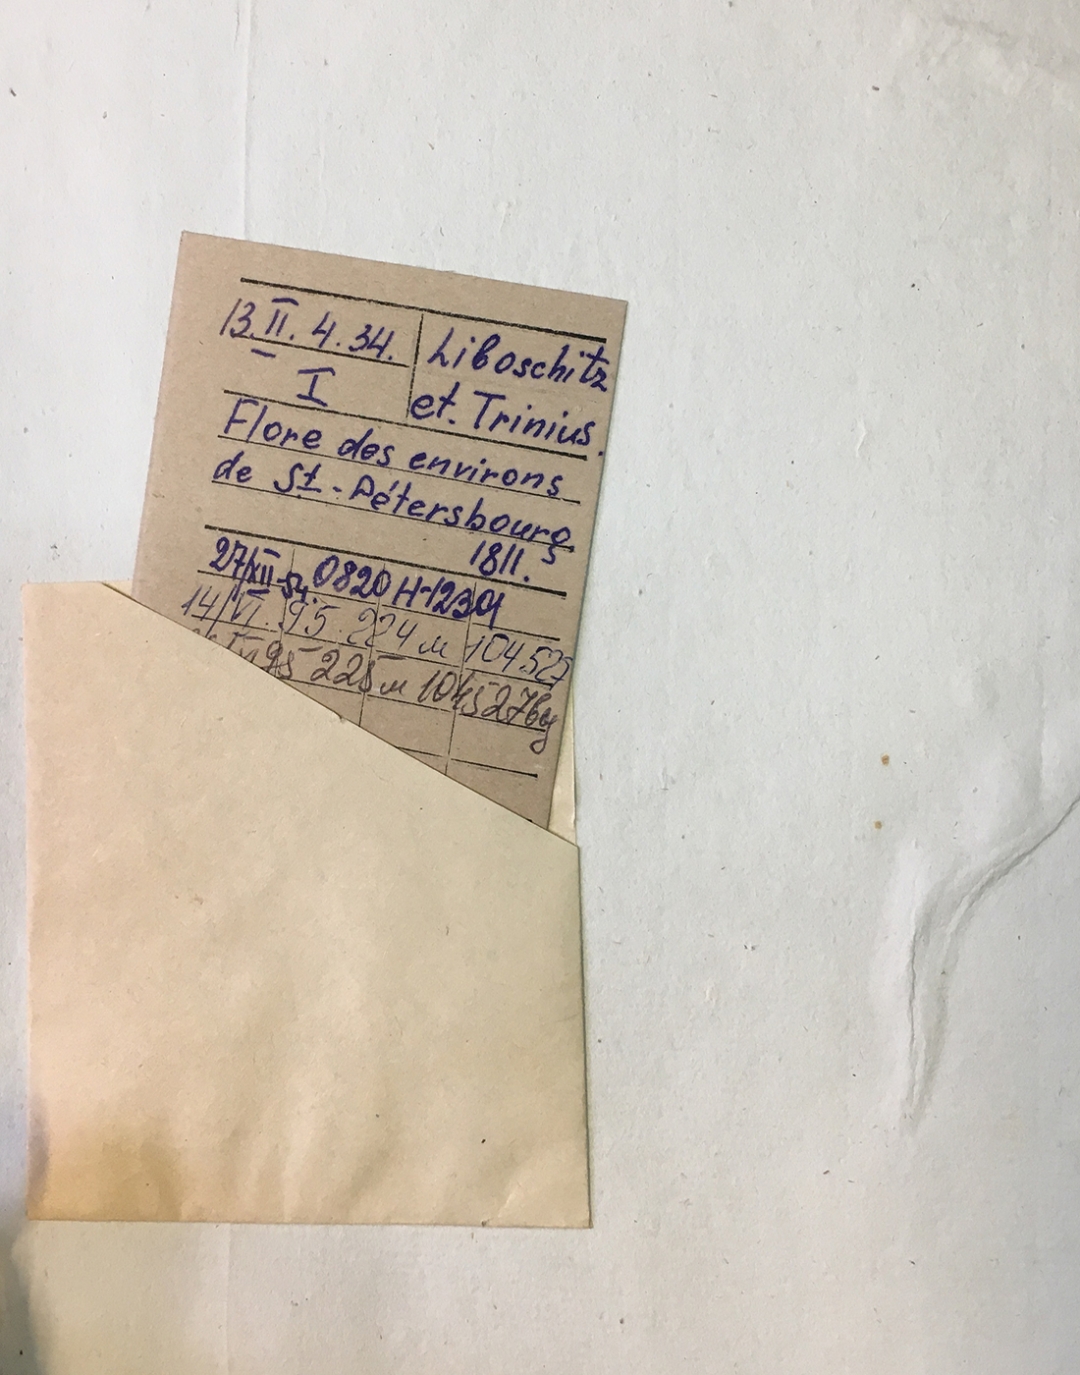 13.II.4.34.
I
Liboschitz
et. Trinius.
Flore des environs
de St-Pétersbourg
1811.
27/XII-54. 0820 Н-12301
14/VI. 95 224 м 104.527
VI 95 225 м 104527